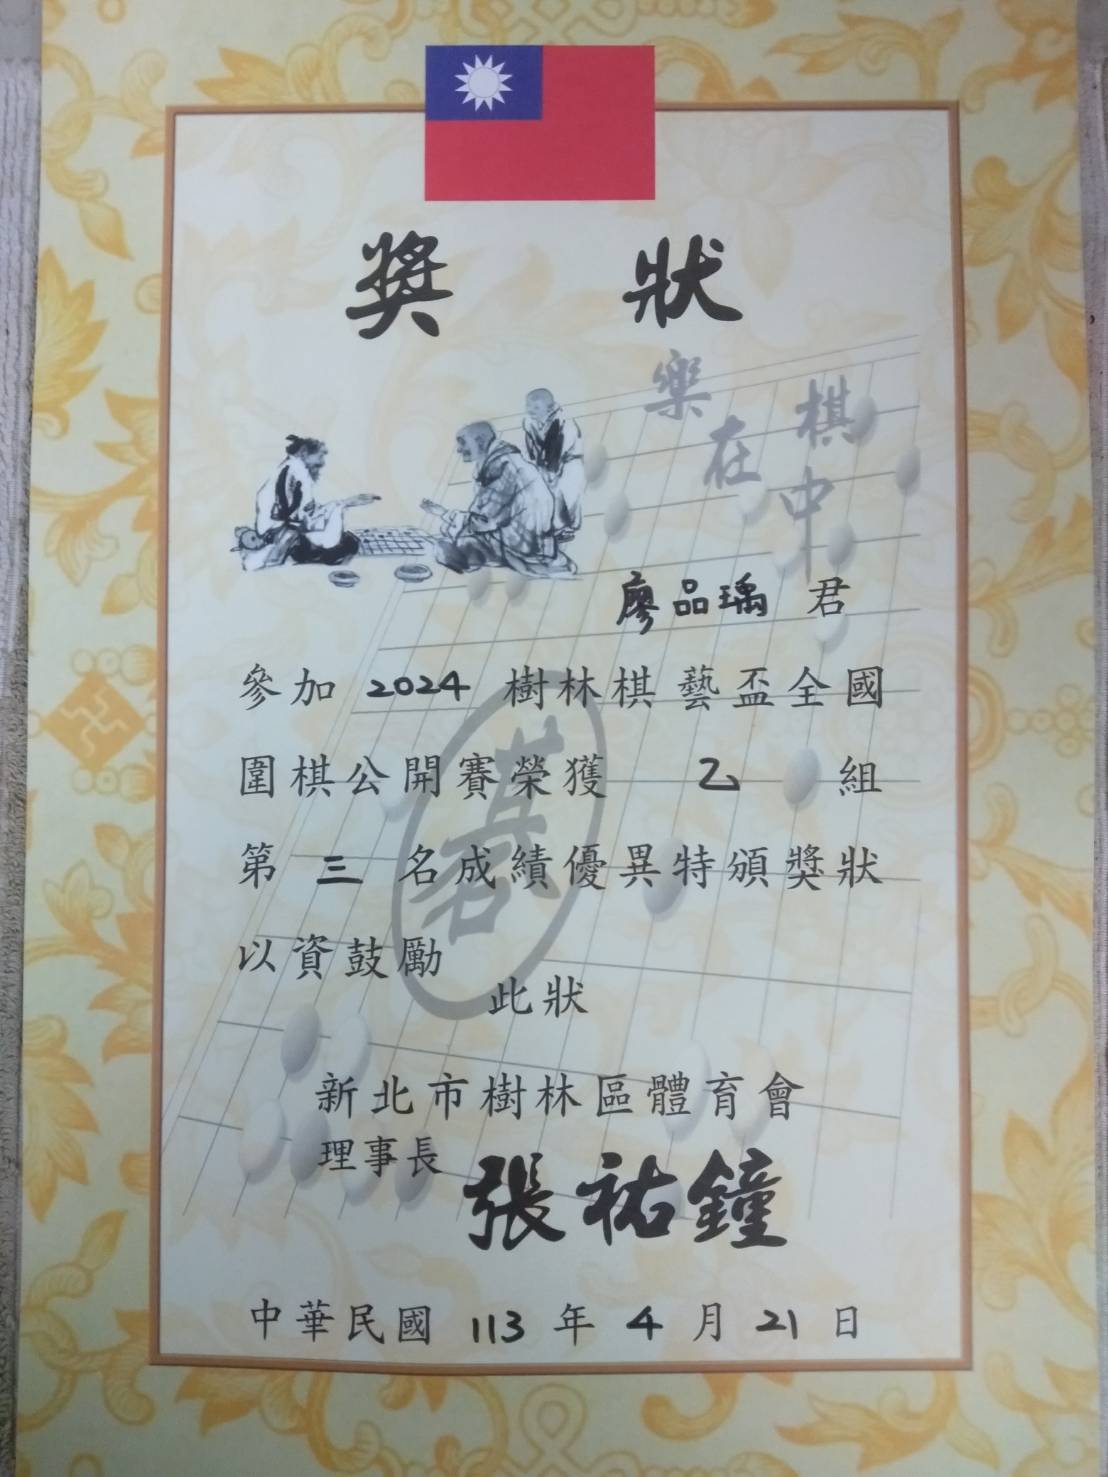 獎 狀
樂在棋中
廖品瑀 君
參加 2024 樹林棋藝盃全國
圍棋公開賽榮獲 乙 組
第 三 名成績優異特頒獎狀
以資鼓勵
此狀
新北市樹林區體育會
理事長 張祐鐘
中華民國 113 年 4 月 21 日